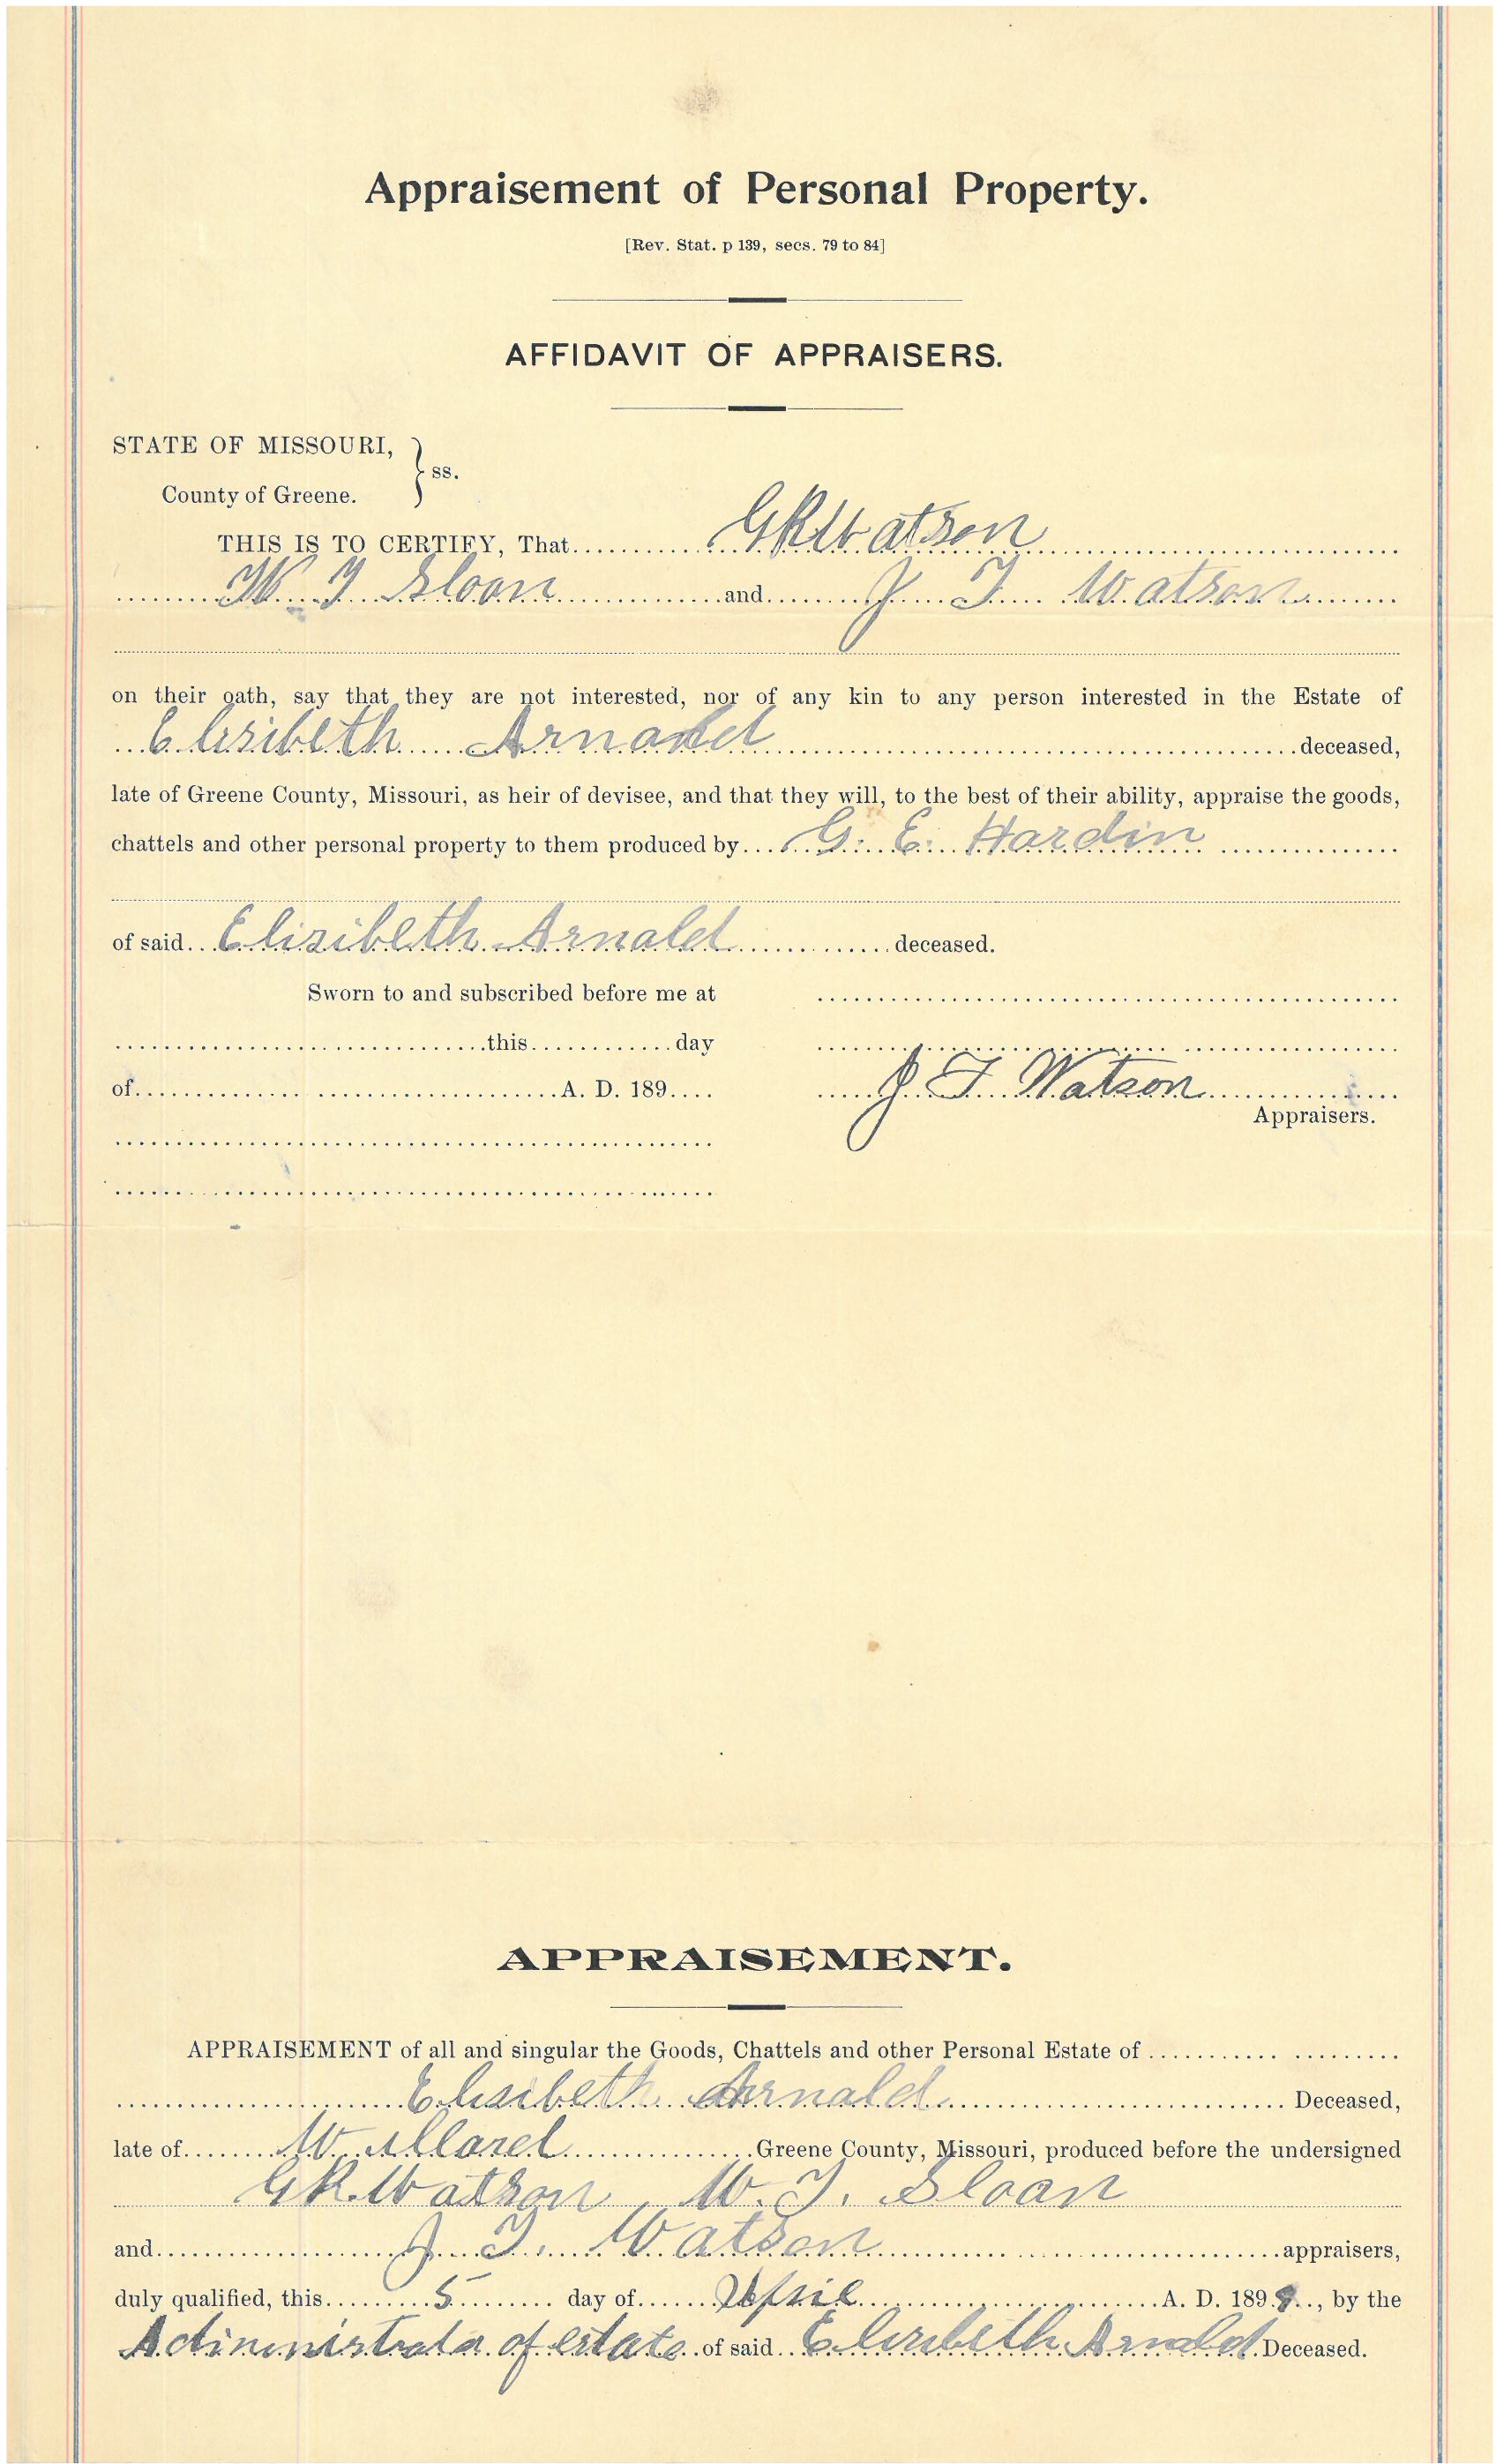 Appraisement of Personal Property.
[Rev. Stat. p 139, secs. 79 to 84]
AFFIDAVIT OF APPRAISERS.
STATE OF MISSOURI,
County of Greene. } ss.
THIS IS TO CERTIFY, That GR Watson
W. J Sloan and J. T. Watson
on their oath, say that they are not interested, nor of any kin to any person interested in the Estate of
Elisibeth Arnald deceased,
late of Greene County, Missouri, as heir of devisee, and that they will, to the best of their ability, appraise the goods,
chattels and other personal property to them produced by G. E. Hardin
of said Elisibeth Arnald deceased.
Sworn to and subscribed before me at
this day
of A. D. 189
J. T. Watson
Appraisers.
APPRAISEMENT.
APPRAISEMENT of all and singular the Goods, Chattels and other Personal Estate of
Elisibeth Arnald Deceased,
late of Willard Greene County, Missouri, produced before the undersigned
GR Watson, W. J. Sloan
and J. T. Watson appraisers,
duly qualified, this 5 day of April A. D. 189 , by the
of estate of said Elisibeth Arnald Deceased.